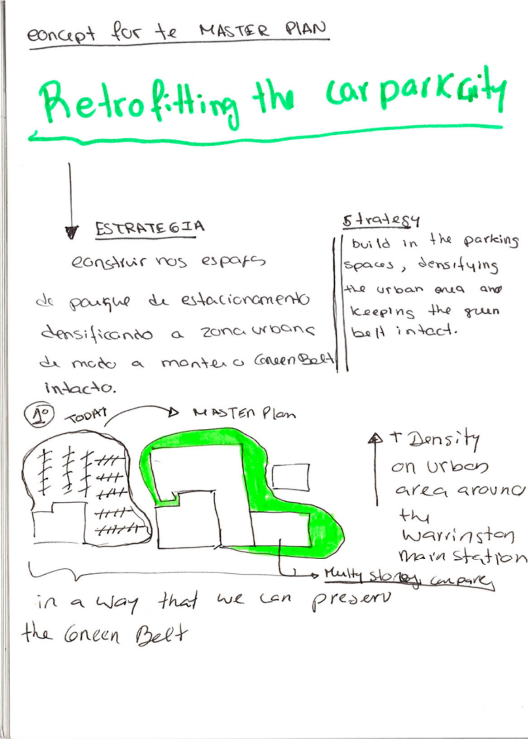 concept for te MASTER PLAN
Retrofitting the car park city
ESTRATEGIA
construir nos espaços
de parque de estacionamento
densificando a zona urbana
de modo a manter o Green Belt
intacto.
Strategy
build in the parking
spaces, densifying
the urban area and
keeping the green
belt intact.
1º TODAY MASTER Plan
+ Density
on urban
area around
the
Warrington
main station
Multy storey carpark
in a way that we can preserv
the Green Belt